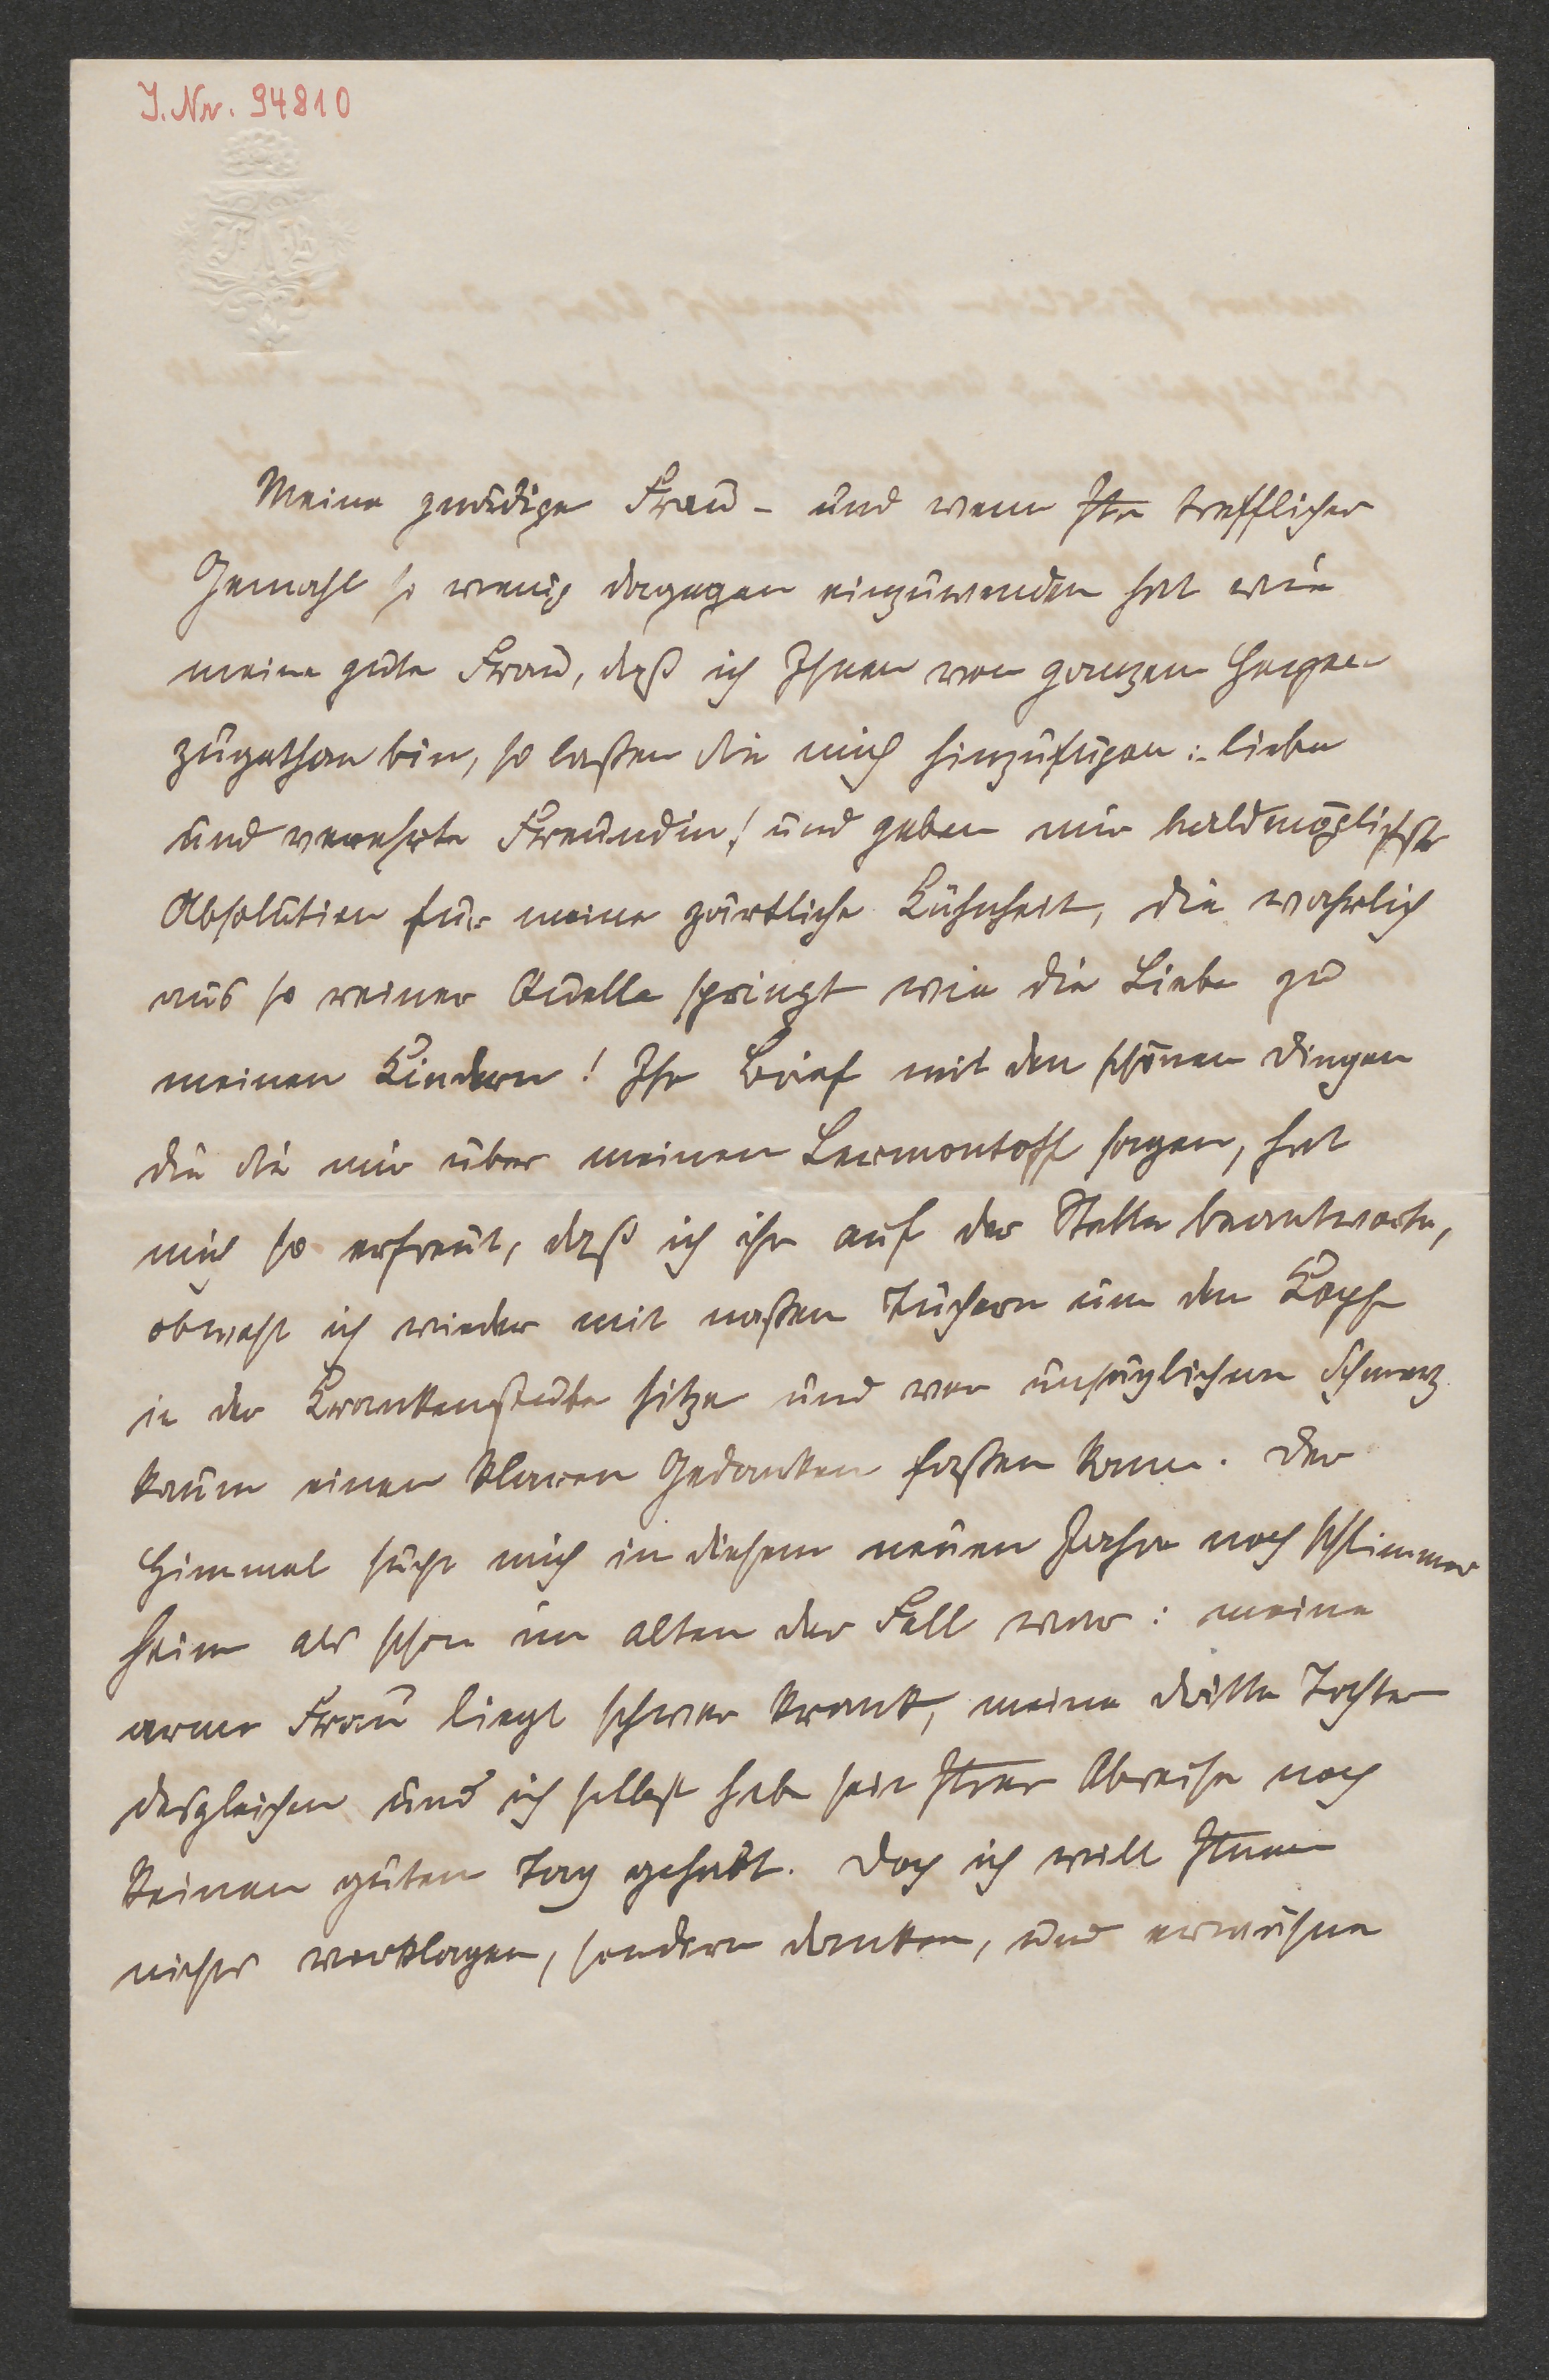 J. Nr. 94810
Meine gnädige Frau – und wenn Ihr trefflicher
Gemahl so wenig dagegen einzuwenden hat wie
meine gute Frau, daß ich Ihnen von ganzem Herzen
zugethan bin, so laßen Sie mich hinzufügen: liebe
und verehrte Freundin! und geben mir baldmöglichst
Absolution für meine zärtliche Kühnheit, die wahrlich
aus so reiner Quelle springt wie die Liebe zu
meinen Kindern! Ihr Brief mit den schönen Dingen
die Sie mir über meinen Lermontoff sagen, hat
mich so erfreut, daß ich ihn auf der Stelle beantworte,
obwohl ich wieder mit naßen Tüchern um den Kopf
in der Krankenstube sitze und vor unsäglichem Schmerz
kaum einen klaren Gedanken faßen kann. Der
Himmel sucht mich in diesem neuen Jahre noch schlimmer
heim als schon im alten der Fall war: meine
arme Frau liegt schwer krank, meine dritte Tochter
desgleichen und ich selbst habe seit Ihrer Abreise noch
keinen guten Tag gehabt. Doch ich will Ihnen
nichts vorklagen, sondern danken, und erwähne